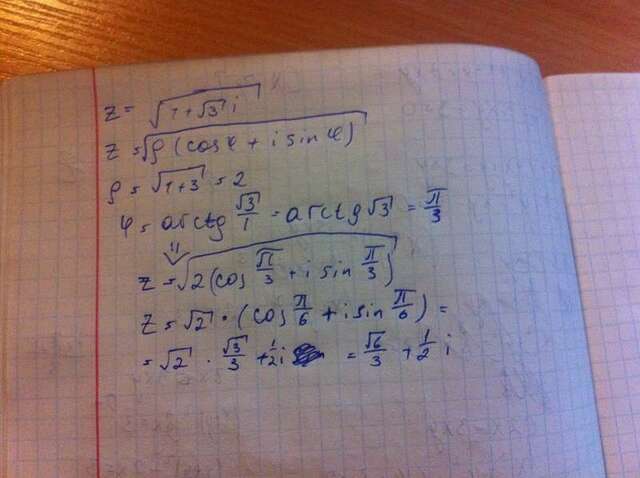 z = √(1+√3 i)
z = √(ρ (cos φ + i sin φ))
ρ = √(1+3) = 2
φ = arctg √3/1 = arctg √3 = π/3
⇓
z = √(2(cos π/3 + i sin π/3))
z = √2 · (cos π/6 + i sin π/6) =
= √2 · √3/3 + 1/2 i = √6/3 + 1/2 i